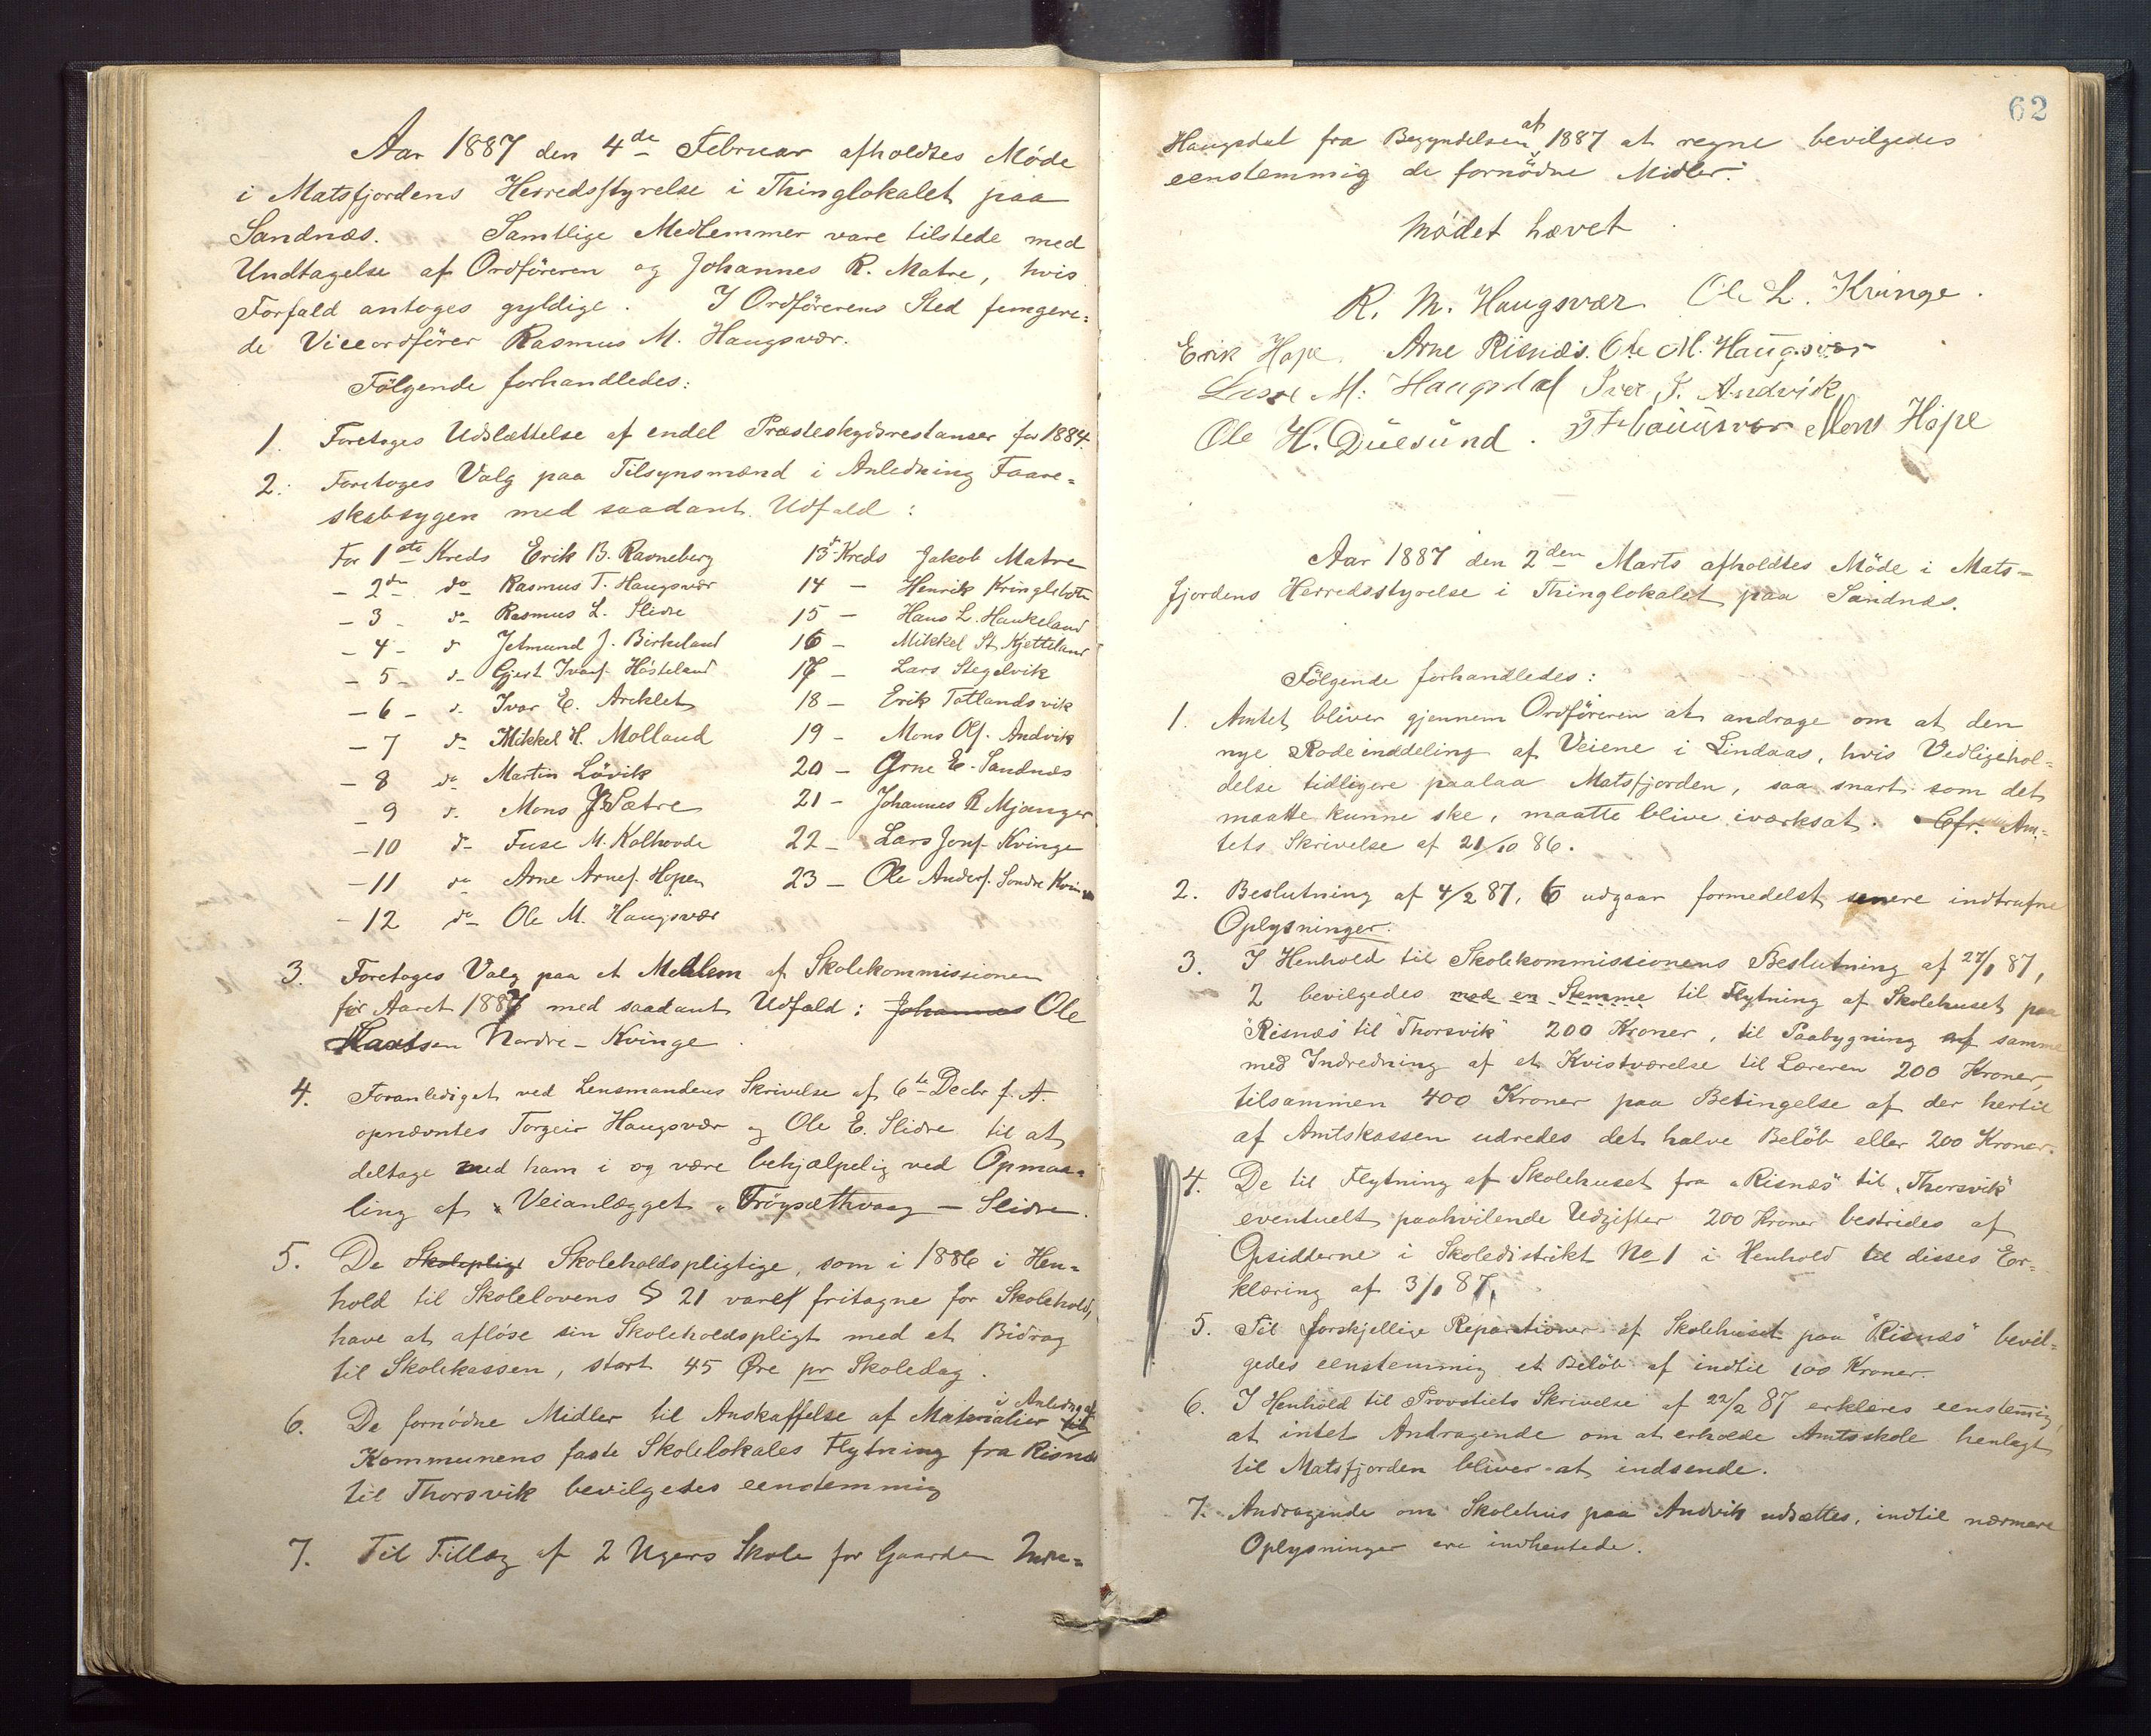 Aar 1887 den 4de Februar afholdtes Möde
i Matsfjordens Herredsstyrelse i Thinglokalet paa
Sandnæs. Samtlige Medlemmer vare tilstede med
Undtagelse af Ordföreren og Johannes R. Matre, hvis
Forfald antoges gyldige. I Ordförerens Sted fungere-
de Viceordförer Rasmus M. Haugsvær.
Fölgende forhandledes:
1. Foretoges Udslættelse af endel Præsteskydsrestanser for 1884.
2. Foretoges Valg paa Tilsynsmænd i Anledning Faare-
skabsygen med saadant Udfald:
For 1ste Kreds Erik B. Ravneberg
- 2den do Rasmus T. Haugsvær
- 3 - do Rasmus L. Slidre
- 4 - do Jetmund J. Birkeland
- 5 - do Gjert Ivarf. Hösteland
- 6 - do Ivar E. Areklet
- 7 do Mikkel H. Molland
- 8 do Martin Lövik
- 9 do Mons J Sætre
- 10 do Fuse M. Kolhovde
- 11 do Arne Arnef. Hopen
- 12 do Ole M. Haugsvær
13 Kreds Jakob Matre
14 - Henrik
15 - Hans L. Haukeland
16 - Mikkel St. Kjetteland
17 - Lars Stegelvik
18 - Erik Totlandsvik
19 - Mons Olf. Andvik
20 - Arne E. Sandnæs
21 - Johannes R Mjanger
22 - Lars Jonf. Kvinge
23 - Ole Andersf. Söndre Kvinge
3. Foretoges Valg paa et Medlem af Skolekommissionen
for Aaret 1887 med saadant Udfald: Johannes Ole
Nordre-Kvinge.
4. Foranlediget ved Lensmandens Skrivelse af 6te Decbr f. A.
opnævntes Torgeir Haugsvær og Ole E. Slidre til at
deltage med ham i og være behjælpelig ved Opmaa-
ling af Veianlægget „Fröysæthvaag - Slidre.
5. De Skolepligt Skoleholdspligtige, som i 1886 i Hen-
hold til Skolelovens § 21 vare fritagne for Skolehold,
have at aflöse sin Skoleholdspligt med et Bidrag
til Skolekassen, stort 45 Øre pr Skoledag.
i Anledng af
6. De fornödne Midler til Anskaffelse af Materialier til
Kommunens faste Skolelokales Flytning fra Risnæs
til Thorsvik bevilgedes eenstemmig
7. Til Tillæg af 2 Ugers Skole for Gaarden Indre-
62
Haugsdal fra Begyndelsen af 1887 at regne bevilgedes
eenstemmig de fornödne Midler.
Mödet hævet.
R. M. Haugsvær. Ole L. Kvinge.
Erik Hope. Arne Risnæs. Ole M. Haugsvær
Lasse M. Haugsdal Iver J. Andvik
Ole H. Duesund. Mons Hope
Aar 1887 den 2den Marts afholdtes Möde i Mats-
fjordens Herredsstyrelse i Thinglokalet paa Sandnæs.
Fölgende forhandledes:
1. Amtet bliver gjennem Ordföreren at andrage om at den
nye Rodeinddeling af Veiene i Lindaas, hvis Vedligehol-
delse tidligere paalaa Matsfjorden, saa snart som det
maatte kunne ske, maatte blive iværksat. Cfr. Am-
tets Skrivelse af 21/10 86.
2. Beslutning af 4/2 87, 6 udgaar formedelst senere indtrufne
Oplysninger.
3. I Henhold til Skolekommissionens Beslutning af 27/1 87,
2 bevilgedes med en Stemme til Flytning af Skolehuset paa
"Risnæs" til "Thorsvik" 200 Kroner, til Paabygning af samme
med Indredning af et Kvistværelse til Læreren 200 Kroner,
tilsammen 400 Kroner paa Betingelse af der hertil
af Amtskassen udredes det halve Belöb eller 200 Kroner.
4. De til Flytning af Skolehuset fra „Risnæs" til „Thorsvik"
eventuelt paahvilende Udgifter 200 Kroner bestrides af
Opsidderne i Skoledistrikt No 1 i Henhold til disses Er-
klæring af 3/1 87.
5. Til forskjellige Reparationer af Skolehuset paa "Risnæs" bevil-
gedes eenstemmig et Belöb af indtil 100 Kroner.
6. I Henhold til Provstiets Skrivelse af 22/2 87 erklæres eenstemmig,
at intet Andragende om at erholde Amtsskole henlagt
til Matsfjorden bliver at indsende.
7. Andragende om Skolehus paa Andvik udsættes, indtil nærmere
Oplysninger ere indhentede.